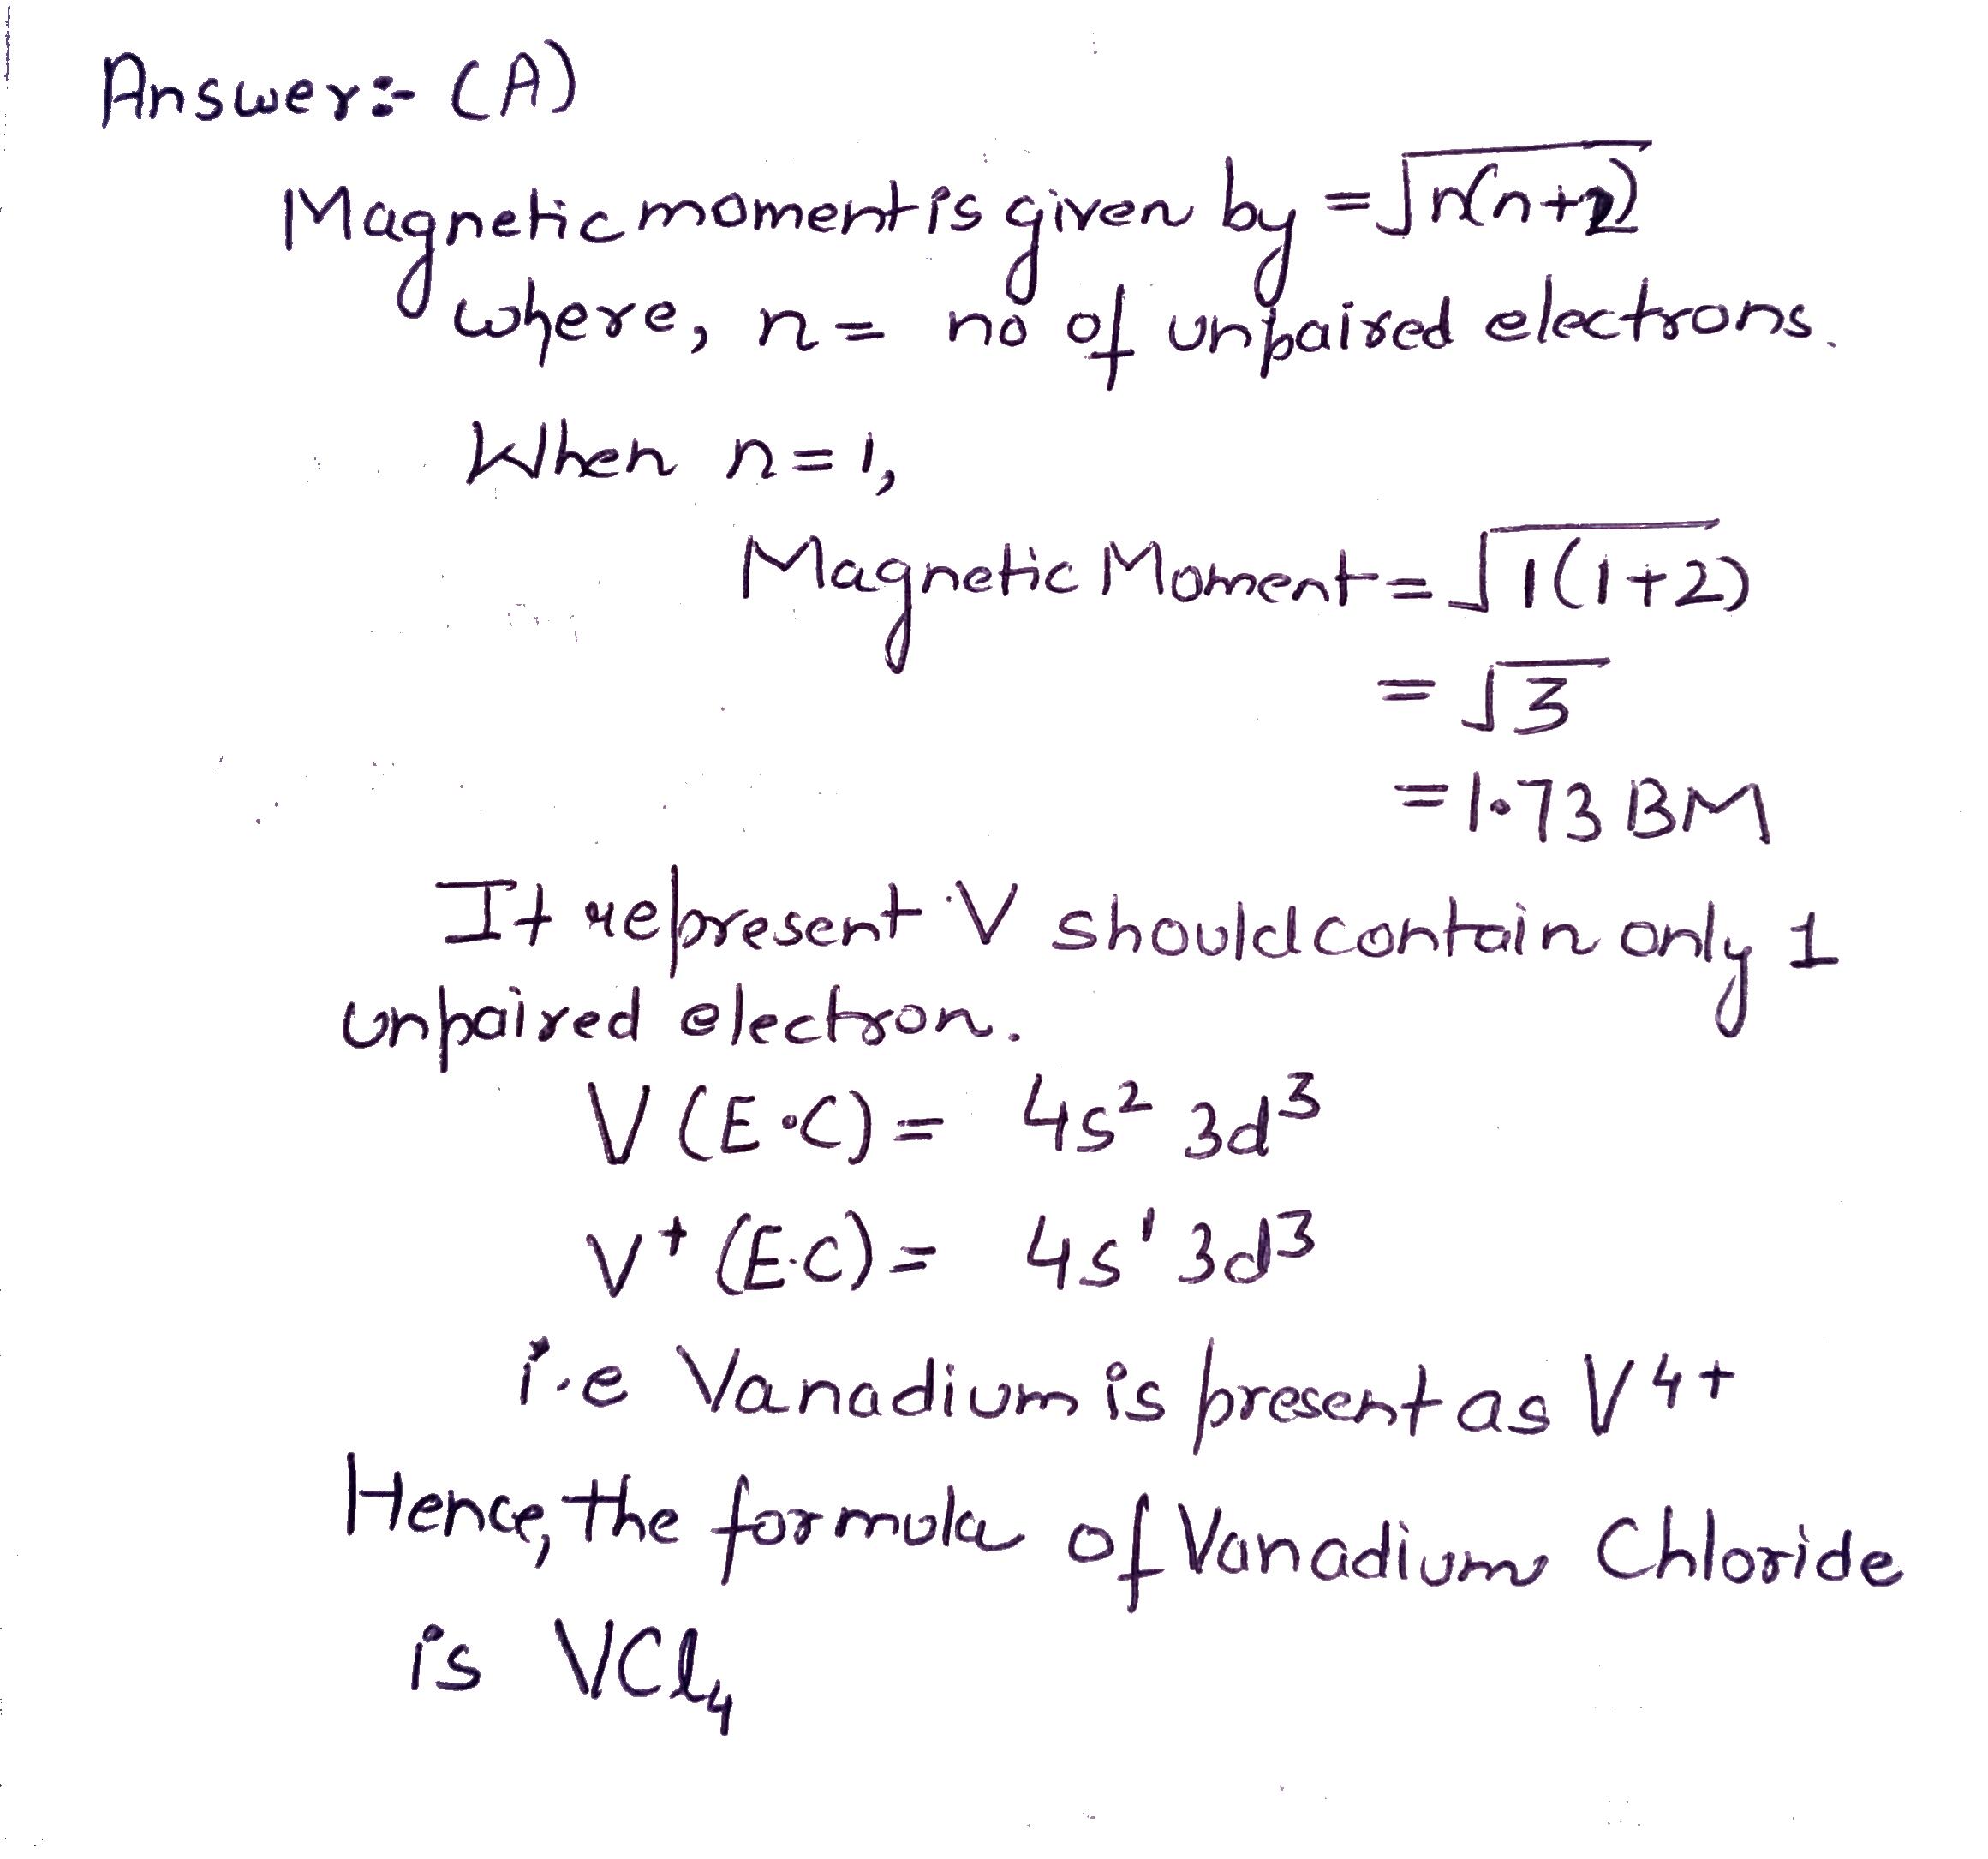 Answer:- (A)
Magnetic moment is given by = √n(n+2)
where, n = no of unpaired electrons.
When n=1,
Magnetic Moment = √1(1+2)
= √3
= 1.73 BM
It represent V should contain only 1
unpaired electron.
V (E.C) = 4s² 3d³
V⁺ (E.C) = 4s¹ 3d³
i.e Vanadium is present as V⁴⁺
Hence, the formula of Vanadium Chloride
is VCl₄